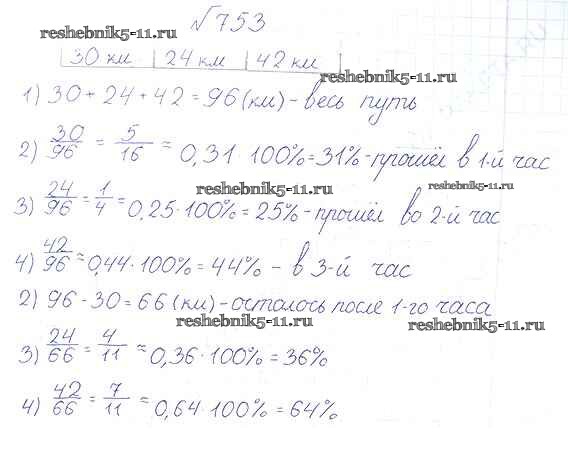 √753
reshebnik5-11.ru
30 км | 24 км | 42 км
reshebnik5-11.ru
1) 30 + 24 + 42 = 96 (км) - весь путь
2) 30/96 = 5/16 = 0,31 100% = 31% - прошёл в 1-й час
reshebnik5-11.ru
reshebnik5-11.ru
3) 24/96 = 1/4 = 0,25 · 100% = 25% - прошёл во 2-й час
4) 42/96 = 0,44 · 100% = 44% - в 3-й час
2) 96 - 30 = 66 (км) - осталось после 1-го часа
reshebnik5-11.ru
reshebnik5-11.ru
3) 24/66 = 4/11 = 0,36 · 100% = 36%
4) 42/66 = 7/11 = 0,64 · 100% = 64%